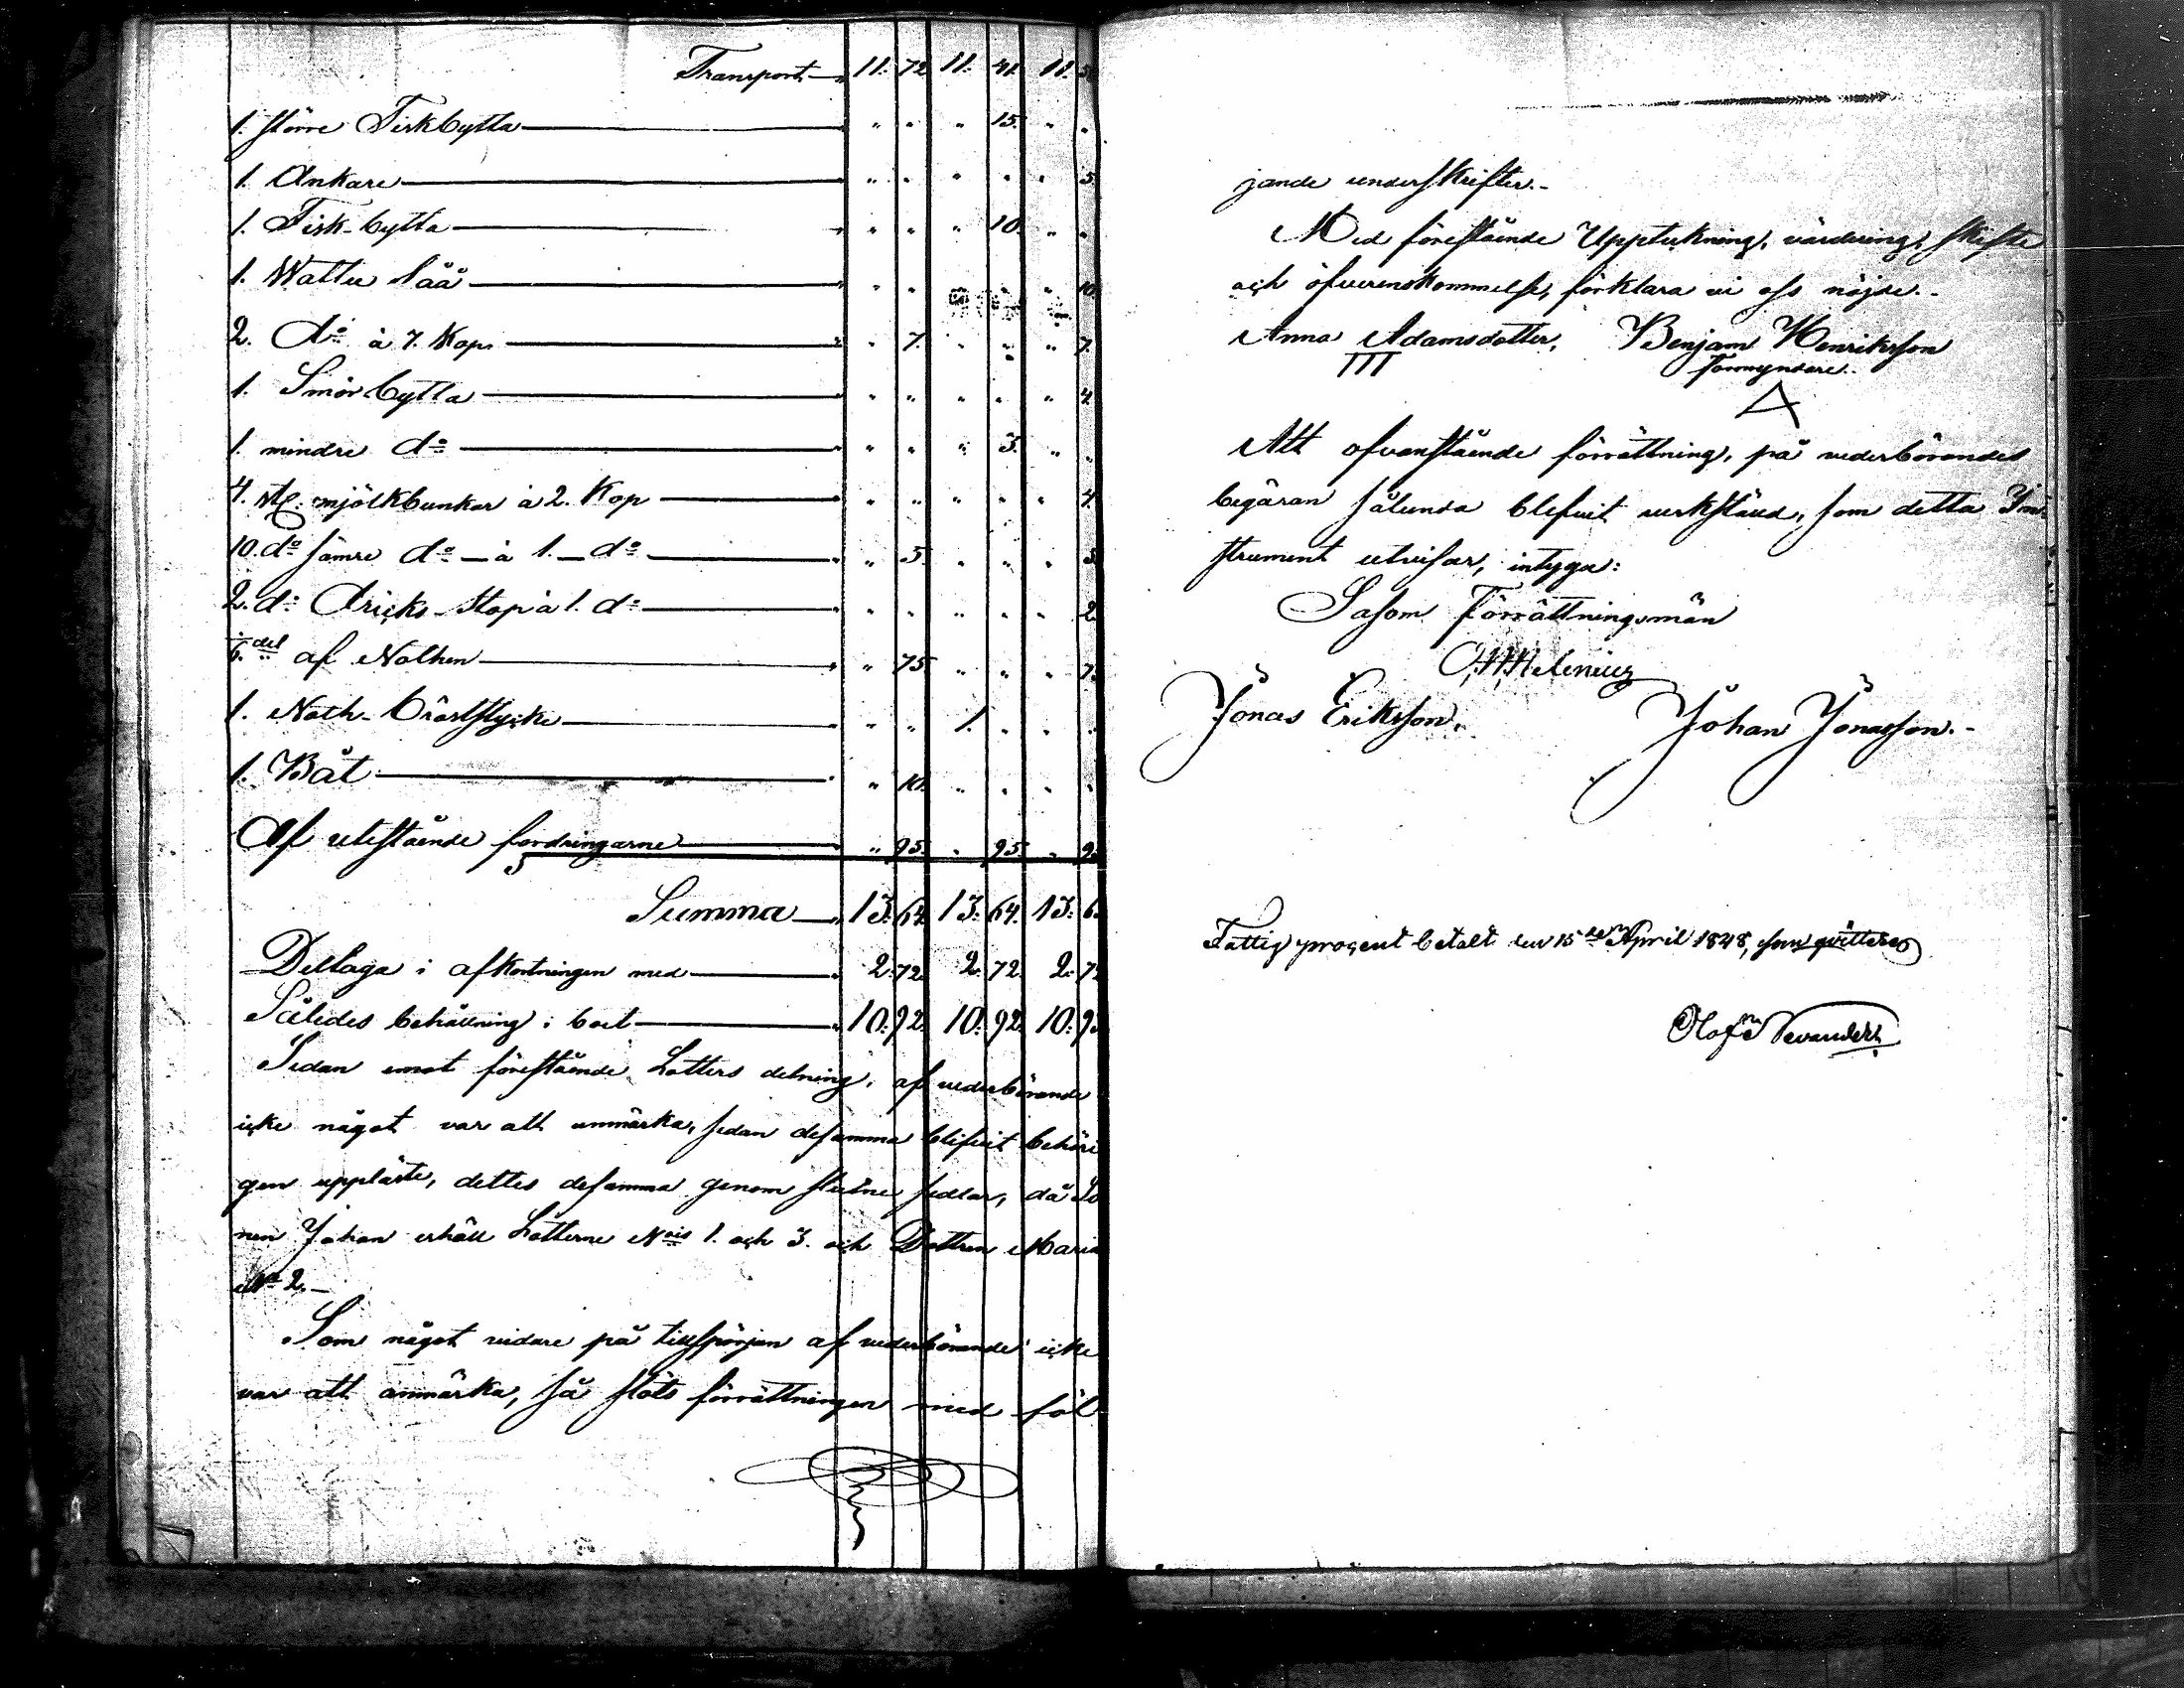 Transport 11. 72 11. 41. 11.
1. större Fiskbytta " " " 15. " "
1. Ankare " " " " " 5.
1. Fisk-bytta " " " 10. " "
1. Wattu Såå " " " " " 10.
2. do à 7. Kop. " 7. " " " 7.
1. Smörbytta " " " " " 4.
1. mindre do " " " 3. " "
4. st. mjölkbunkar à 2. Kop " " " " " 4.
10. do sämre do à 1. do " 5. " " " 5
2. do Dricks-Stop à 1. do " " " " " 2
6. del af Nothen " 75. " " " 7
1. Noth-brästtstycke " " 1. " " "
1. Båt " 10. " " " "
Af utestående fordringarne " 95. " 95. " 9
Summa 13. 64. 13. 64. 13. 6
Deltaga i afkortningen med 2. 72. 2. 72. 2. 7
Således behållning i boet 10. 92. 10. 92. 10. 9
Sedan emot förestående Lotters delning, af vederbörande
icke något var att anmärka, sedan desamma blifvit behöri
gen uppläste, deltes desamma genom slutne sedlar, då So
nen Johan erhöll Lotterne Nris 1. och 3. och Dottren Maria
No 2.
Som något vidare på tillspörjan af vederbörande icke
var att anmärka, så slöts förrättningen med föl
jande underskrifter.-
Med förestående Uppteckning, värdering, skifte
och öfverenskommelse, förklara vi oss nöjde.-
Anna Adamsdotter, Benjam Henriksson
III Förmyndare.
Att ofvanstående förrättning, på vederbörandes
begäran sålunda blifvit verkställd, som detta In-
strument utvisar, intyga:
Såsom Förrättningsmän
Jonas Eriksson. Johan Jonasson.-
Fattig procent betalt den 15de April 1848, som qvitteras
Olof